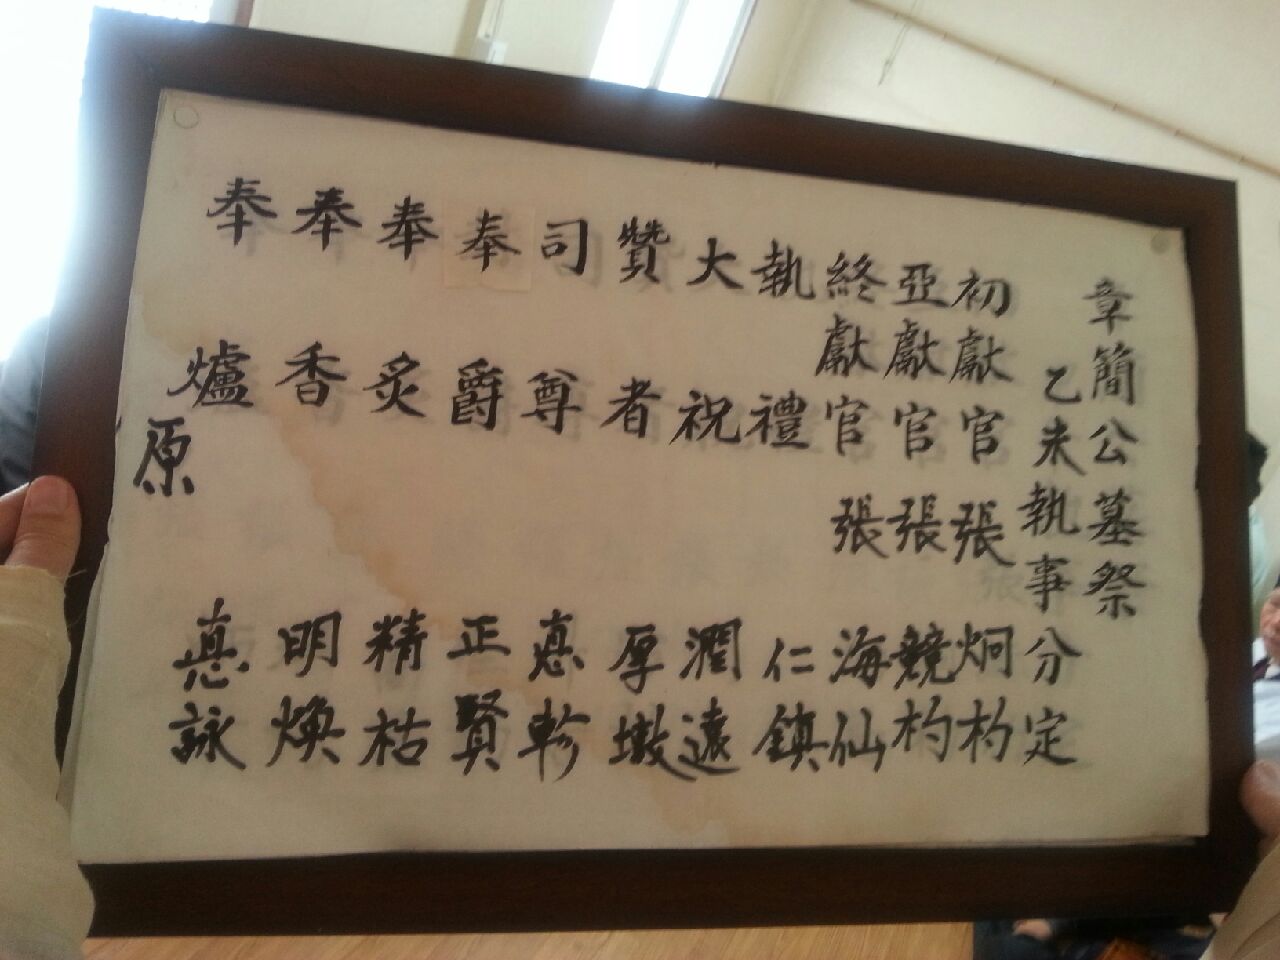 章簡公墓祭
乙未執事分定
初獻官 張炯杓
亞獻官 張競杓
終獻官 張海仙
執禮 仁鎮
大祝 潤遠
贊者 厚墩
司尊 惪
奉爵 正賢
奉炙 精枯
奉香 明煥
奉爐 惪詠
原